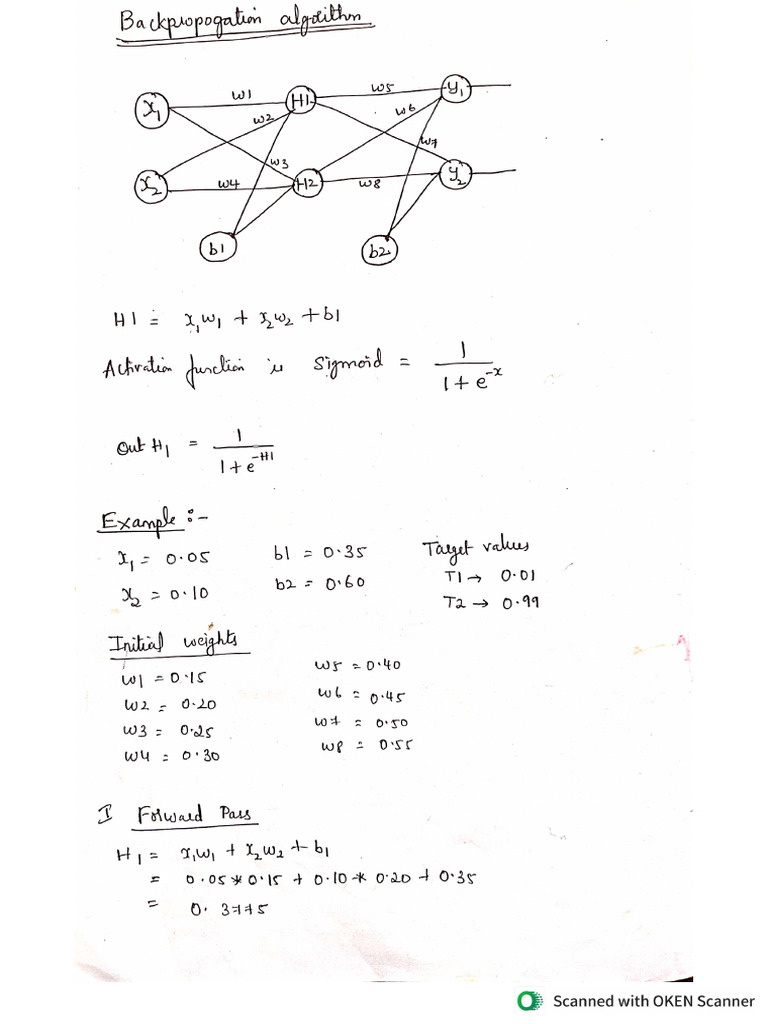 Backpropogation algorithm
x1 w1 H1 w5 y1
w2 w6
w7
w3
x2 w4 H2 w8 y2
b1 b2
H1 = x1w1 + x2w2 + b1
Activation function is Sigmoid = 1 / 1 + e^-x
Out H1 = 1 / 1 + e^-H1
Example :-
x1 = 0.05 b1 = 0.35 Target values
x2 = 0.10 b2 = 0.60 T1 → 0.01
T2 → 0.99
Initial weights
w1 = 0.15 w5 = 0.40
w2 = 0.20 w6 = 0.45
w3 = 0.25 w7 = 0.50
w4 = 0.30 w8 = 0.55
I Forward Pass
H1 = x1w1 + x2w2 + b1
= 0.05 * 0.15 + 0.10 * 0.20 + 0.35
= 0.3775
Scanned with OKEN Scanner